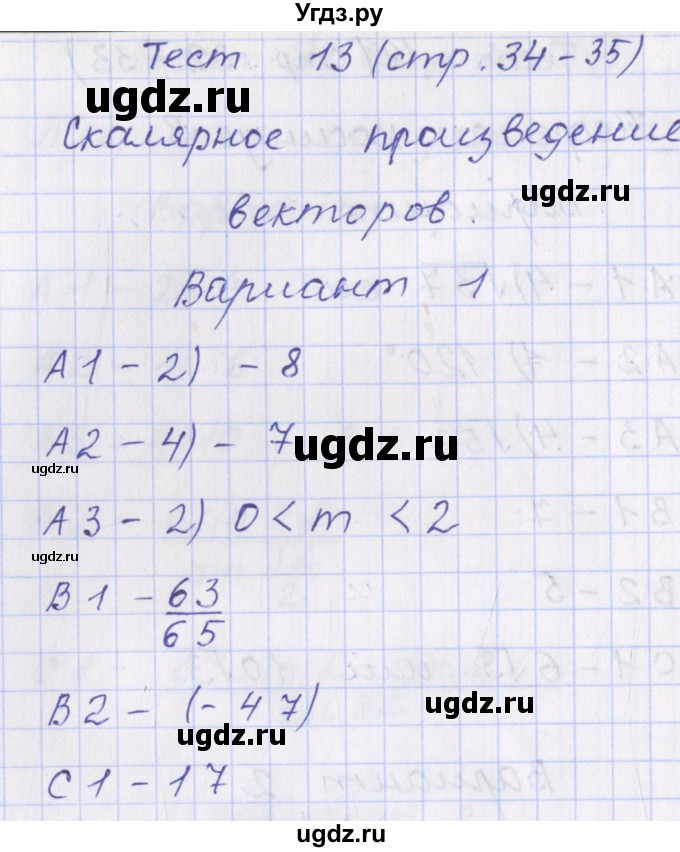 Угдз.ру
Тест 13 (стр. 34-35)
ugdz.ru
Скалярное произведение
ugdz.ru
векторов.
Вариант 1
А1 - 2) - 8
А2 - 4) - 7
ugdz.ru
ugdz.ru
А3 - 2) 0 < m < 2
ugdz.ru
В1 - 63/65
ugdz.ru
В2 - (- 47)
ugdz.ru
С1 - 17
ugdz.ru